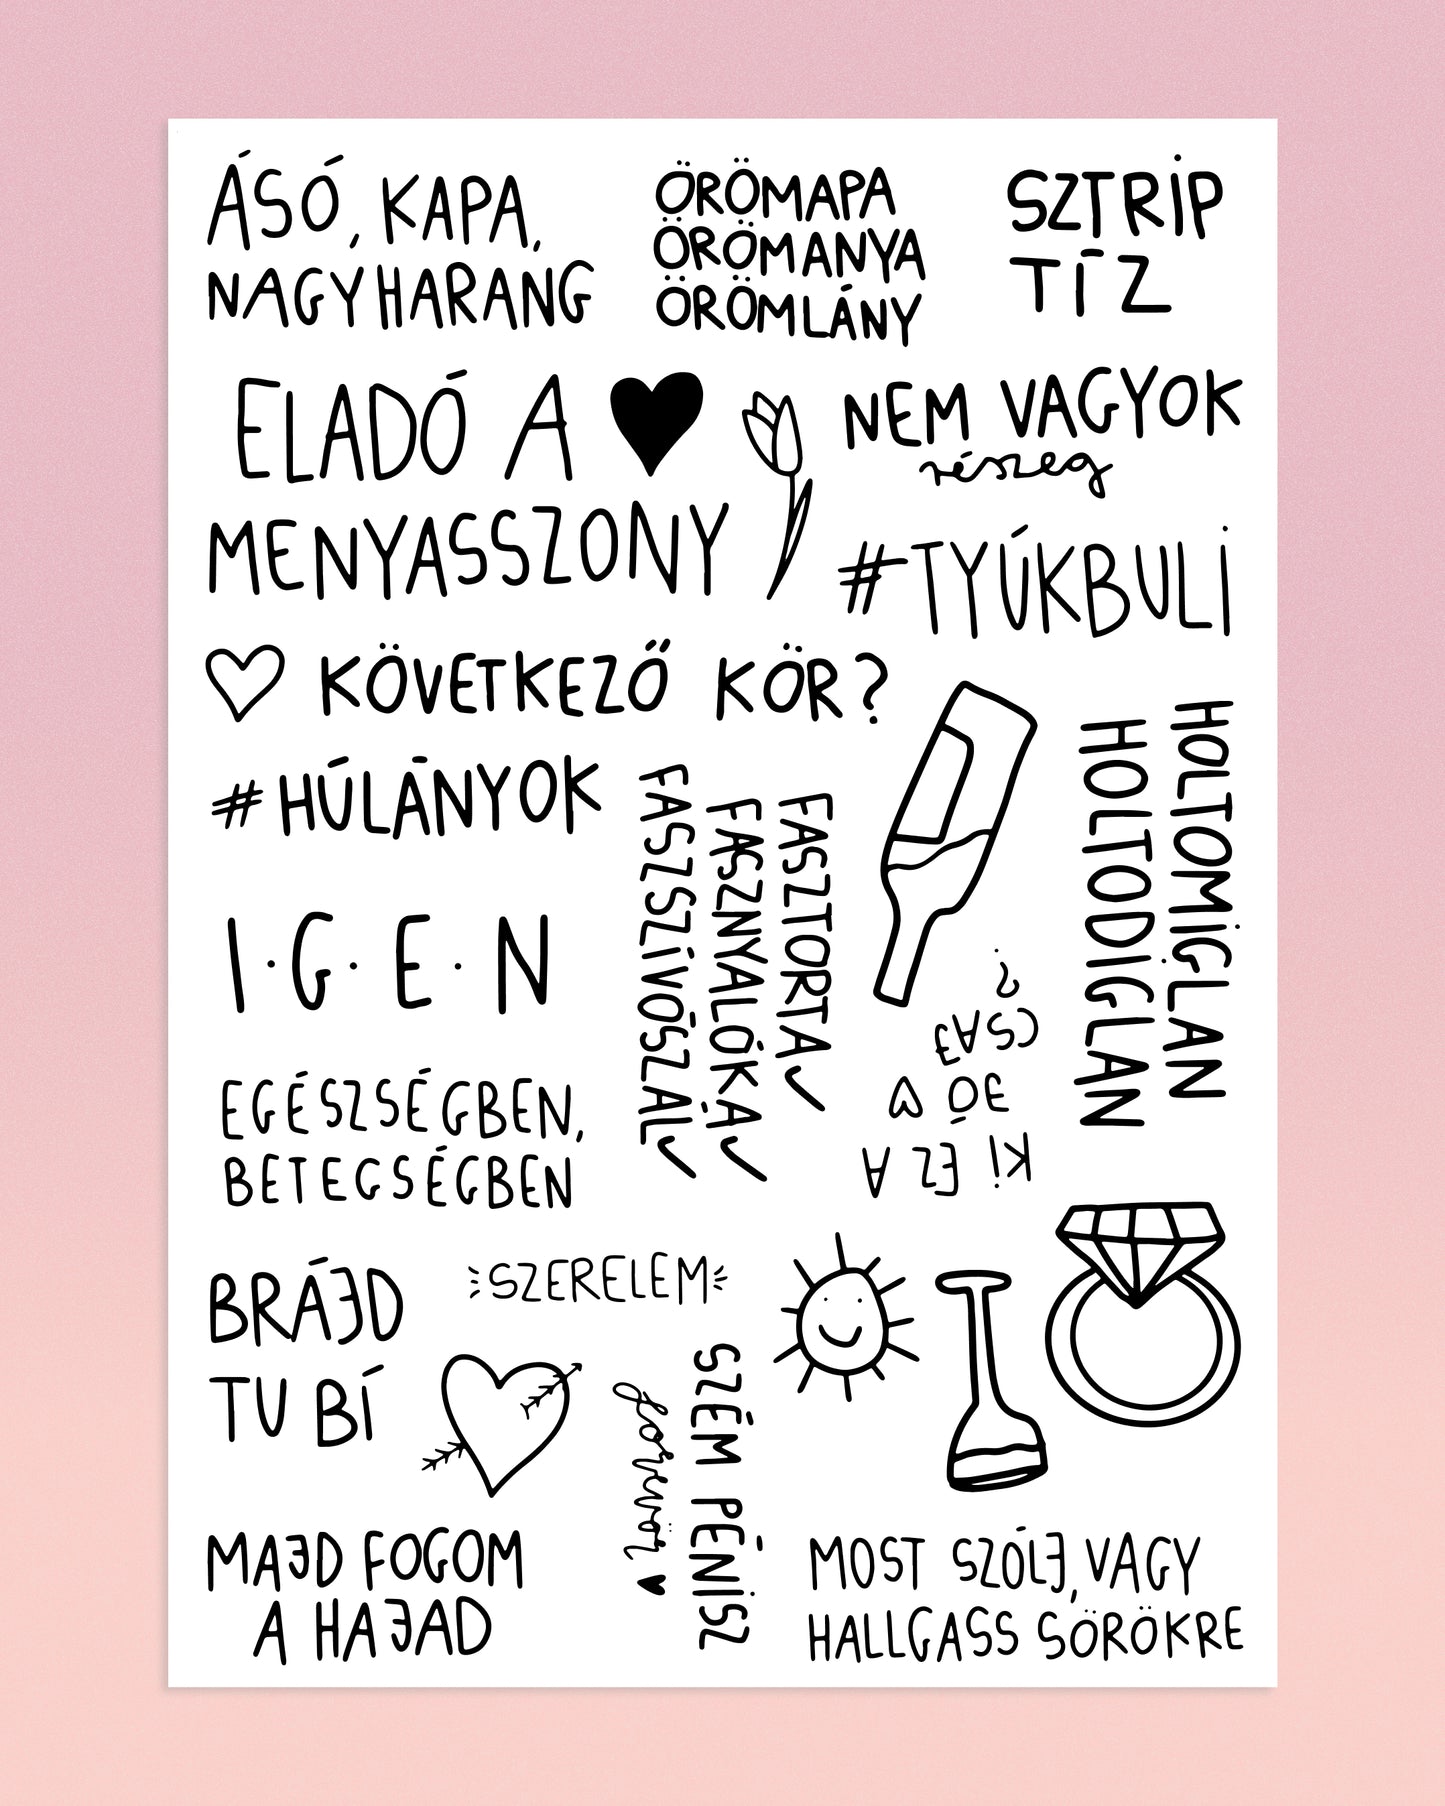 ÁSÓ, KAPA,
NAGYHARANG
ÖRÖMAPA
ÖRÖMANYA
ÖRÖMLÁNY
SZTRİP
TÍZ
ELADÓ A
MENYASSZONY
NEM VAGYOK
részeg
#TYÚKBULİ
KÖVETKEZŐ KÖR?
#HÚLÁNYOK
FASZTORTA
FASZNYALÓKA
FASZSZİVÓSZÁL
HOLTOMİGLAN
HOLTODİGLAN
I·G·E·N
Kİ EZ A
JÓ
CSAJ
?
EGÉSZSÉGBEN,
BETEGSÉGBEN
BRÁJD
TU BÍ
SZERELEM
SZÉM PÉNİSZ
forevör
MAJD FOGOM
A HAJAD
MOST SZÓLJ, VAGY
HALLGASS SÖRÖKRE